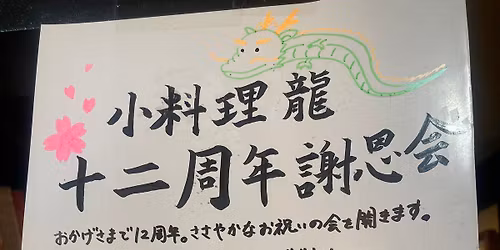 小料理 龍
十二周年謝恩会
おかげさまで12周年。ささやかなお祝いの会を開きます。